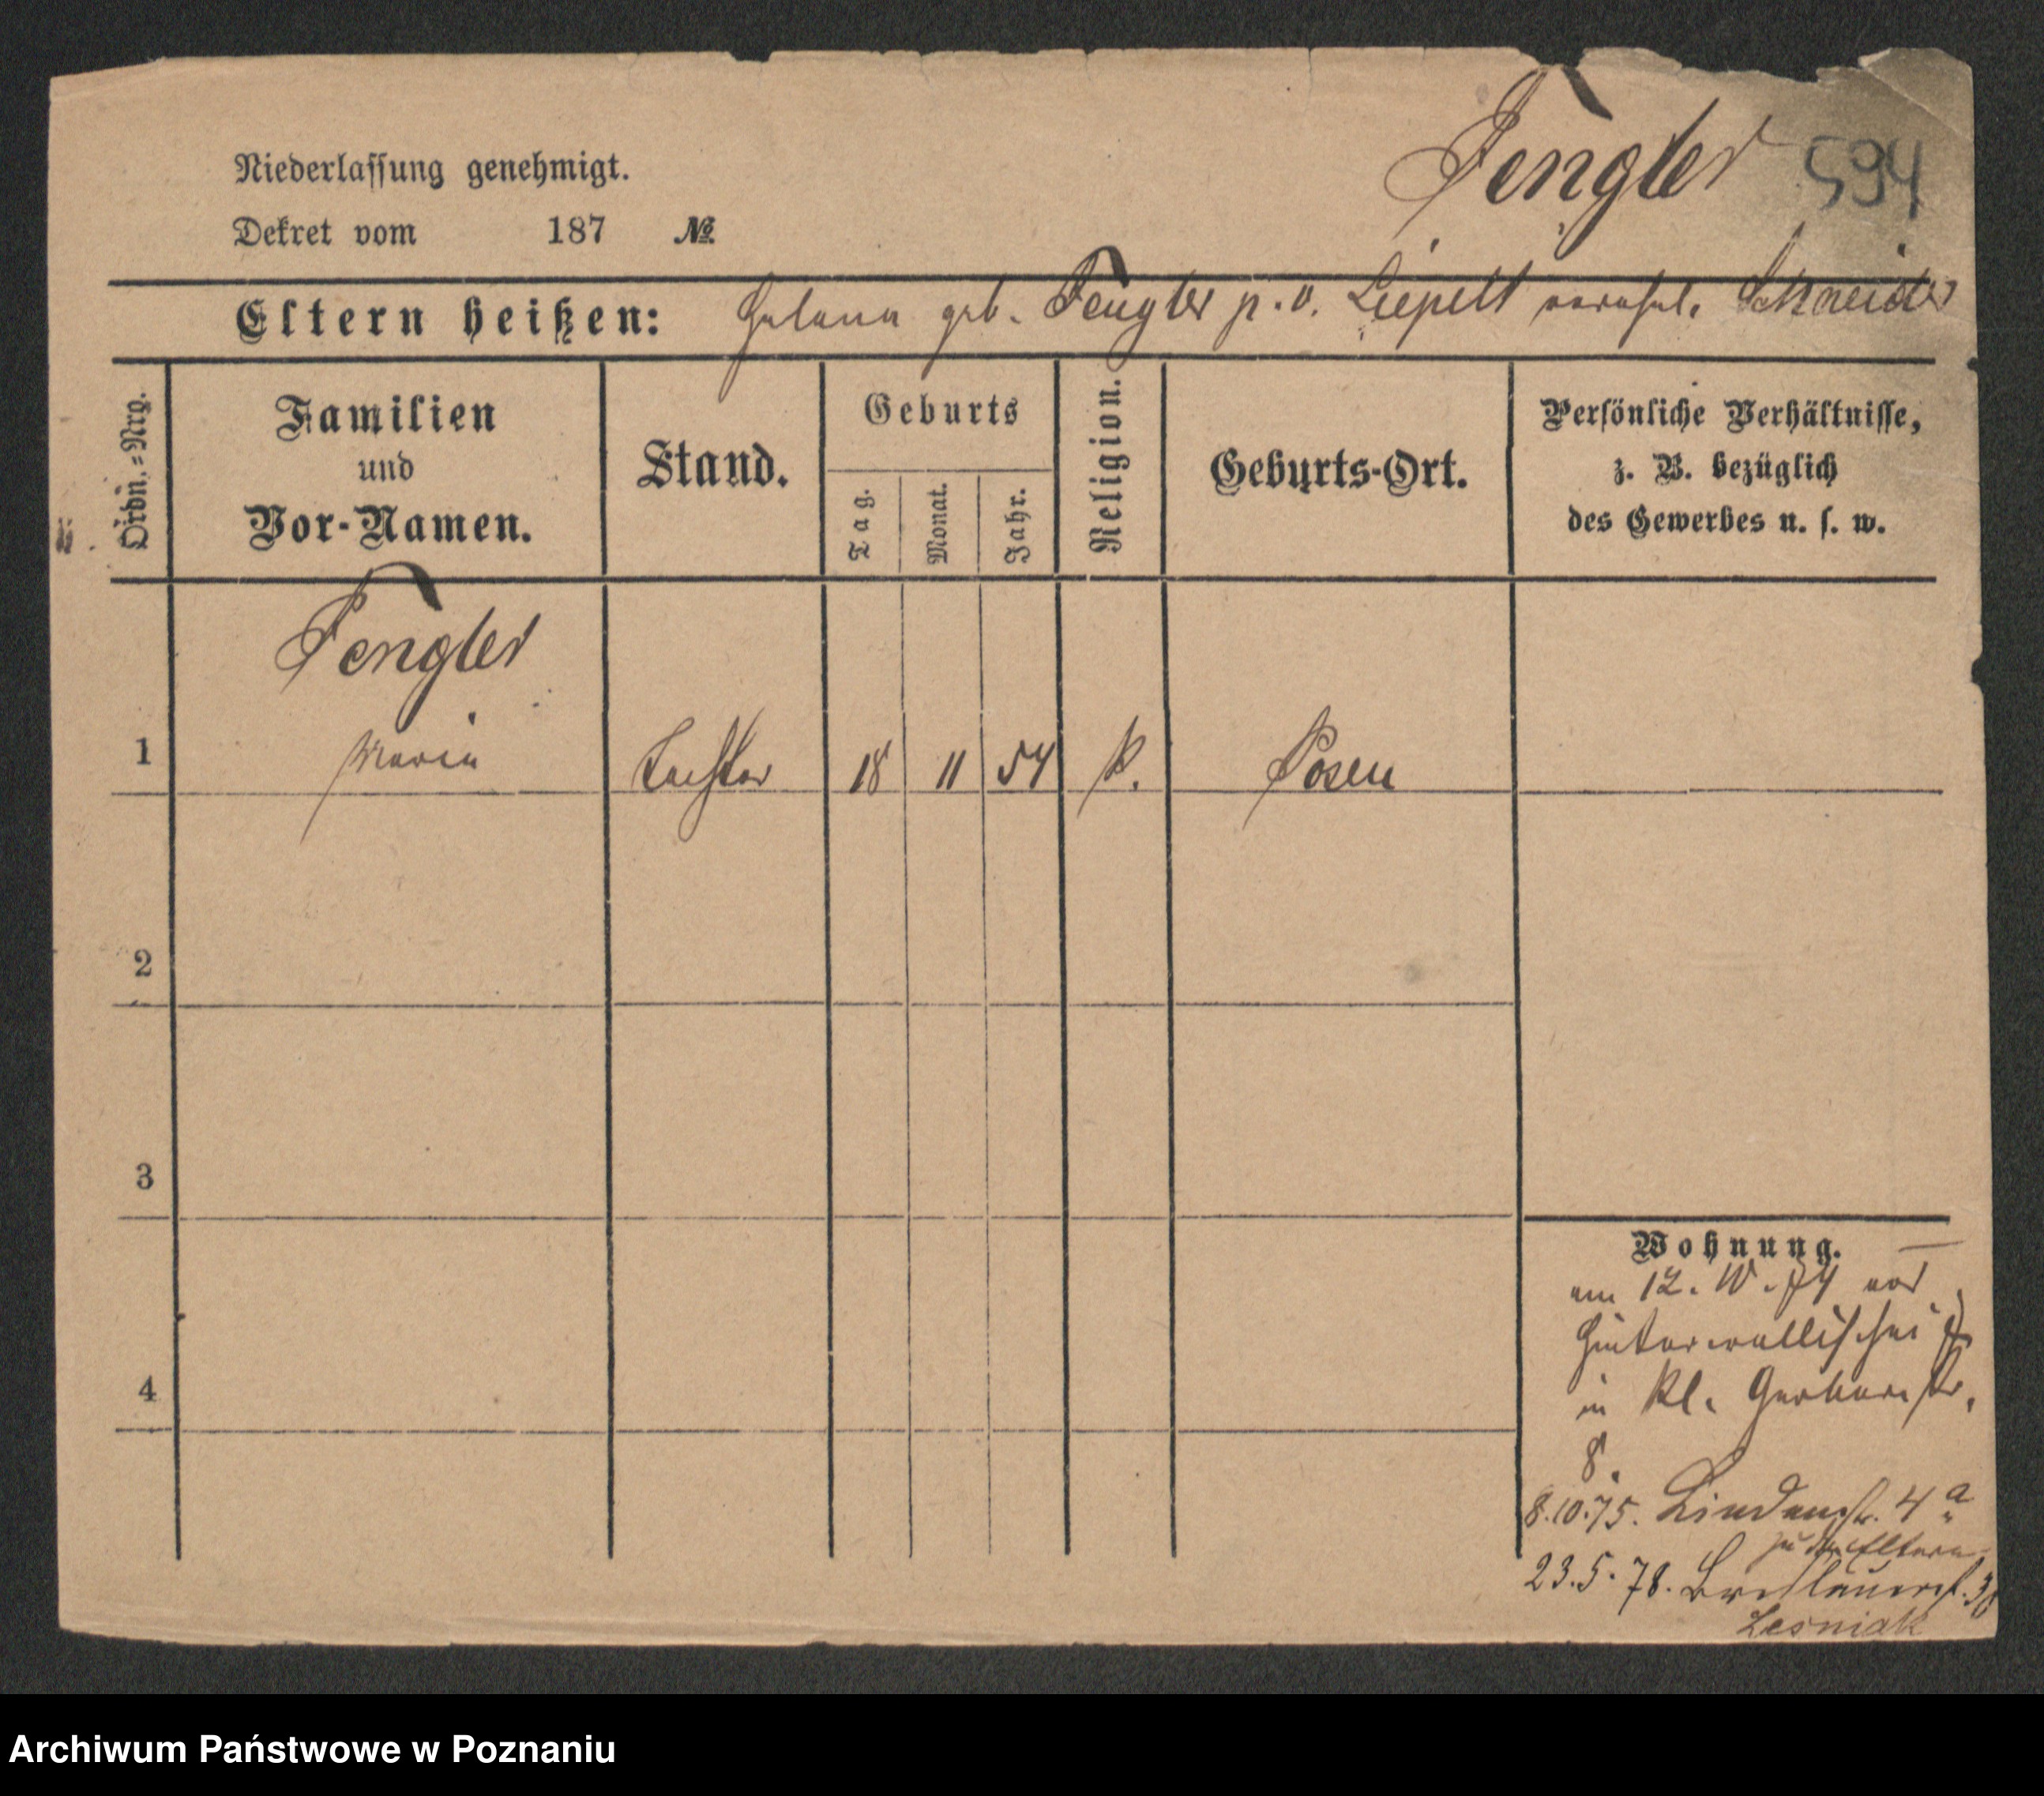 Fengler 594
Niederlassung genehmigt.
Dekret vom 187 №
Eltern heißen: Helena geb. Fengler p. v. Liepelt verehel. Schneider
Ordn.=Nrg.
Familien
und
Vor-Namen.
Stand.
Geburts
Tag.
Monat.
Jahr.
Religion.
Geburts-Ort.
Persönliche Verhältnisse,
z. B. bezüglich
des Gewerbes u. s. w.
Fengler
1 Maria Tochter 18 11 54 K. Posen
2
3
4
Wohnung.
am 12. IV. 74 von
Hinterwallischei
in Kl. Gerberstr.
8.
8.10.75. Lindenstr. 4 a
zu den Eltern
23.5.78. Breslauerst.
Lesniak
Archiwum Państwowe w Poznaniu